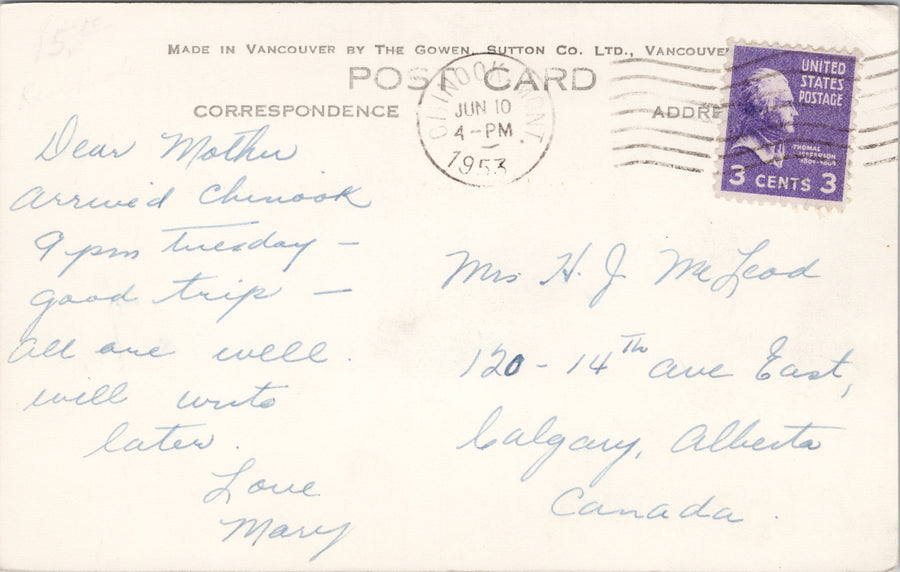 15.00
MADE IN VANCOUVER BY THE GOWEN, SUTTON CO. LTD., VANCOUVE
POST CARD
CORRESPONDENCE
ADDRE
CHINOOK MONT.
JUN 10
4-PM
1953
UNITED
STATES
POSTAGE
THOMAS
JEFFERSON
1801-1809
3 CENTS 3
Dear Mother
Arrived Chinook
9 pm Tuesday -
good trip -
all are well.
will write
later.
Love
Mary
Mrs H. J. McLeod
120 - 14th ave East,
Calgary, Alberta
Canada.